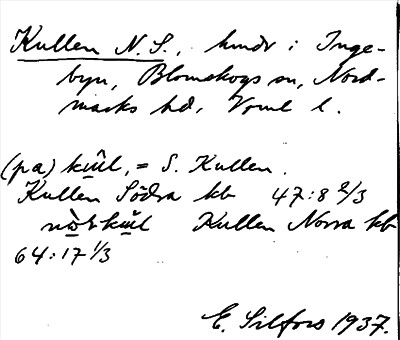 Kullen N. S., hmdr i Inge-
byn, Blomskogs sn, Nord-
marks hd, Vrml l.
(pa) = S. Kullen.
Kullen Södra kb 47:8 2/3
Kullen Norra kb
64:17 1/3
E. Silfors 1937.